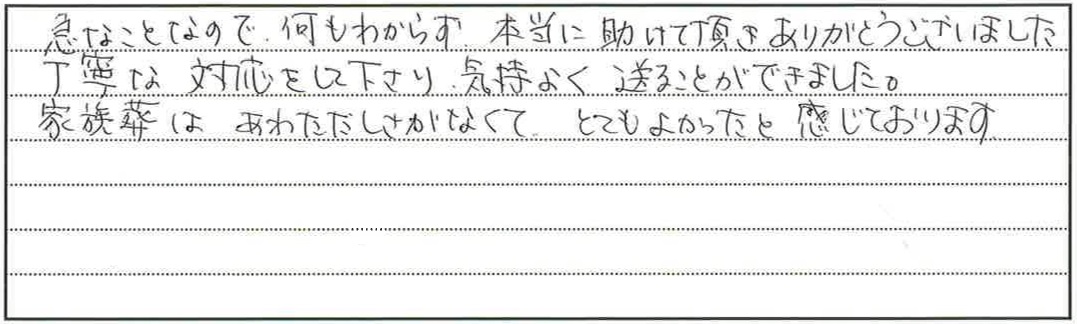 急なことなので、何もわからず、本当に助けて頂きありがとうございました
丁寧な対応をして下さり、気持よく送ることができました。
家族葬はあわただしさがなくて、とてもよかったと感じております